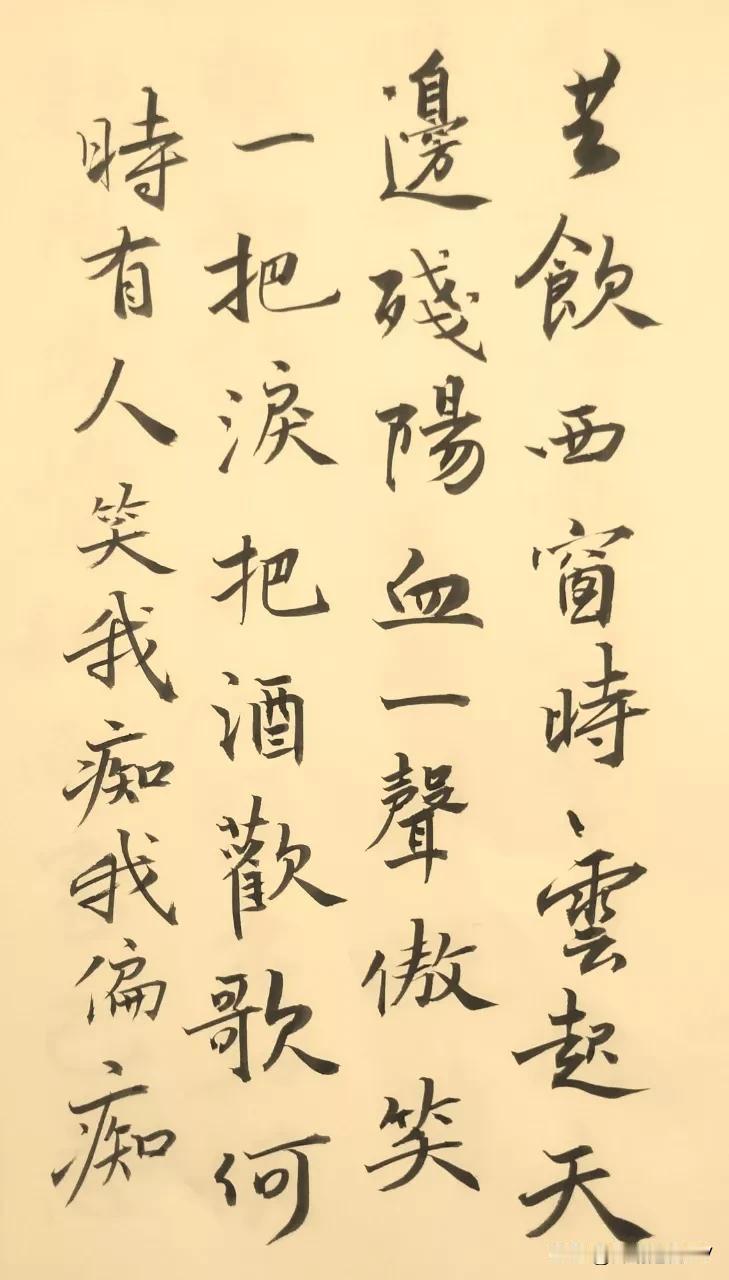 飲西窗時、雲起天
邊殘陽血一聲傲笑
一把淚把酒歡歌何
時有人笑我痴我偏痴